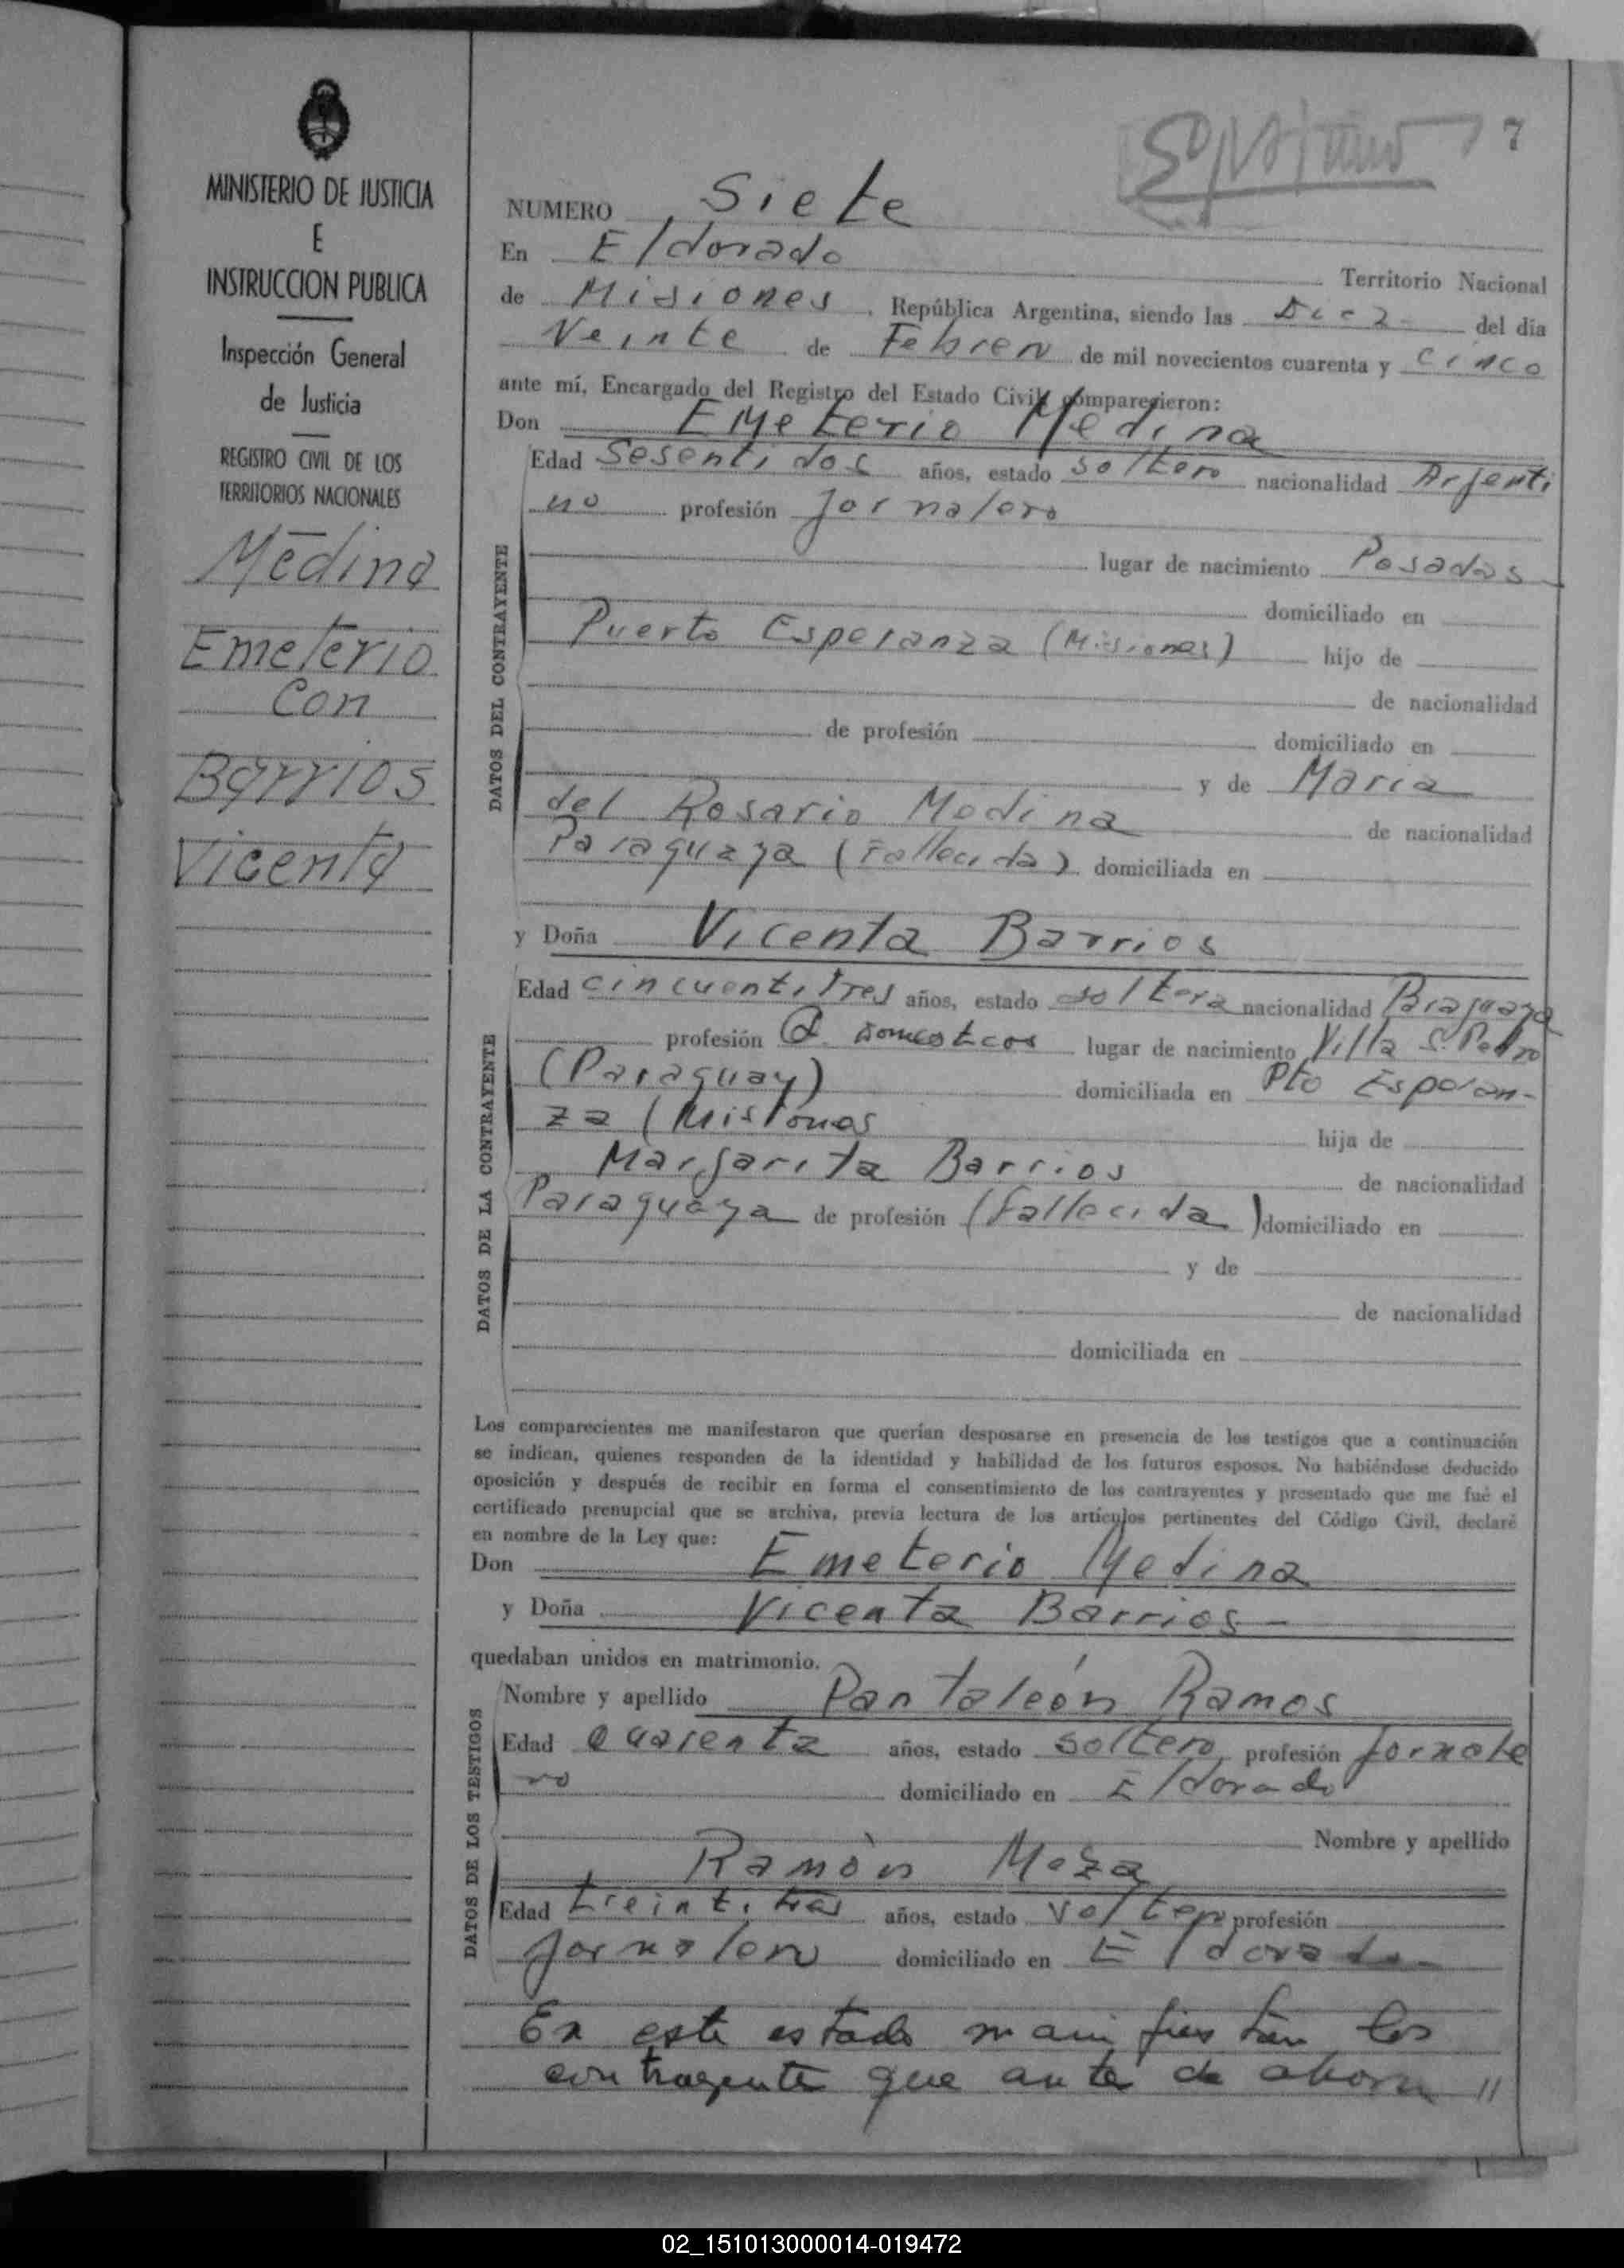 MINISTERIO DE JUSTICIA
E
INSTRUCCION PUBLICA
Inspección General
de Justicia
REGISTRO CIVIL DE LOS
TERRITORIOS NACIONALES
Medina
Emeterio
Con
Barrios
Vicenta
7
NUMERO Siete
En Eldorado Territorio Nacional
de Misiones, República Argentina, siendo las Diez del día
Veinte de Febrero de mil novecientos cuarenta y cinco
ante mí, Encargado del Registro del Estado Civil comparecieron:
Don Emeterio Medina
Edad Sesentidos años, estado soltero nacionalidad Argenti
no profesión Jornalero
lugar de nacimiento Posadas
domiciliado en
Puerto Esperanza (Misiones) hijo de
de nacionalidad
de profesión domiciliado en
y de Maria
del Rosario Medina de nacionalidad
Paraguaya (Fallecida) domiciliada en
DATOS DEL CONTRAYENTE
y Doña Vicenta Barrios
Edad cincuentitres años, estado soltera nacionalidad Paraguaya
profesión Q. Domesticos lugar de nacimiento Villa S. Pedro
(Paraguay) domiciliada en Pto Esperan-
za (Misiones hija de
Margarita Barrios de nacionalidad
Paraguaya de profesión (Fallecida) domiciliado en
y de
de nacionalidad
domiciliada en
DATOS DE LA CONTRAYENTE
Los comparecientes me manifestaron que querían desposarse en presencia de los testigos que a continuación
se indican, quienes responden de la identidad y habilidad de los futuros esposos. No habiéndose deducido
oposición y después de recibir en forma el consentimiento de los contrayentes y presentado que me fué el
certificado prenupcial que se archiva, previa lectura de los artículos pertinentes del Código Civil, declaré
en nombre de la Ley que:
Don Emeterio Medina
y Doña Vicenta Barrios
quedaban unidos en matrimonio.
Nombre y apellido Pantaleón Ramos
Edad Quarenta años, estado soltero, profesión Jornale
ro domiciliado en Eldorado
Nombre y apellido
Ramón Meza
Edad treintitres años, estado soltero profesión
Jornalero domiciliado en Eldorado
DATOS DE LOS TESTIGOS
En este estado manifiestan los
contrayente que ante de ahora //
02_151013000014-019472